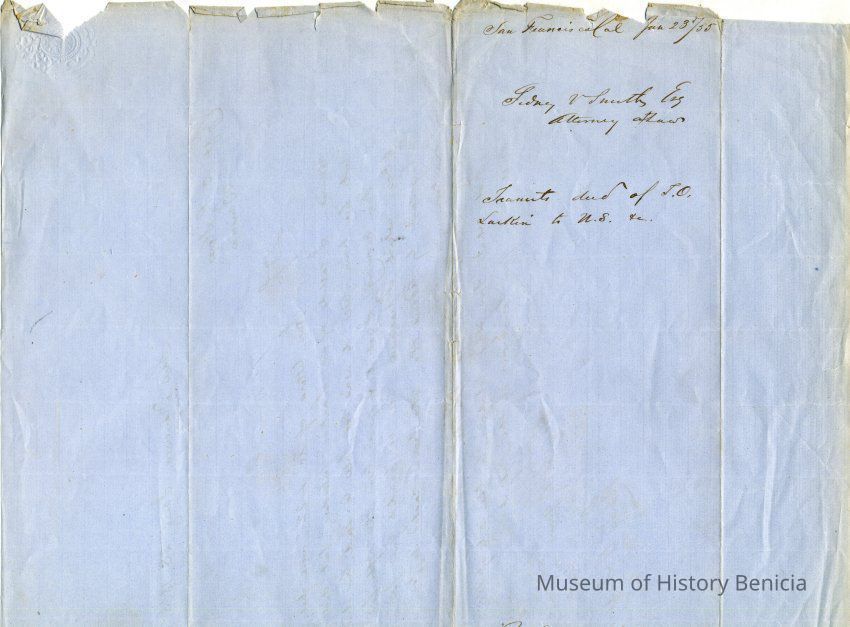 San Francisco Cal Jan 23rd/55
Sidney V Smith Esq
Attorney at Law
Transmits deed of T.O.
Larkin to U.S. &c.
Museum of History Benicia